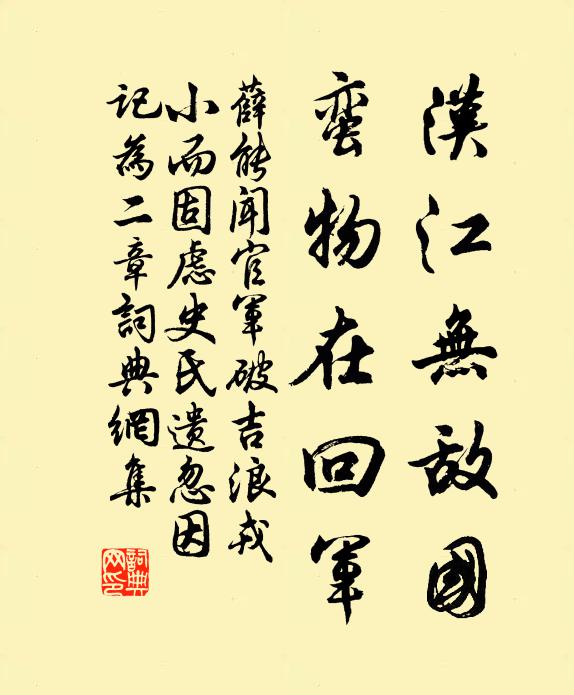 漢江無敌國
蛮物在回軍
薛能闻官軍破吉浪戎
小而固慮史氏遺忽因
记為二章詞典網集
詞典網印